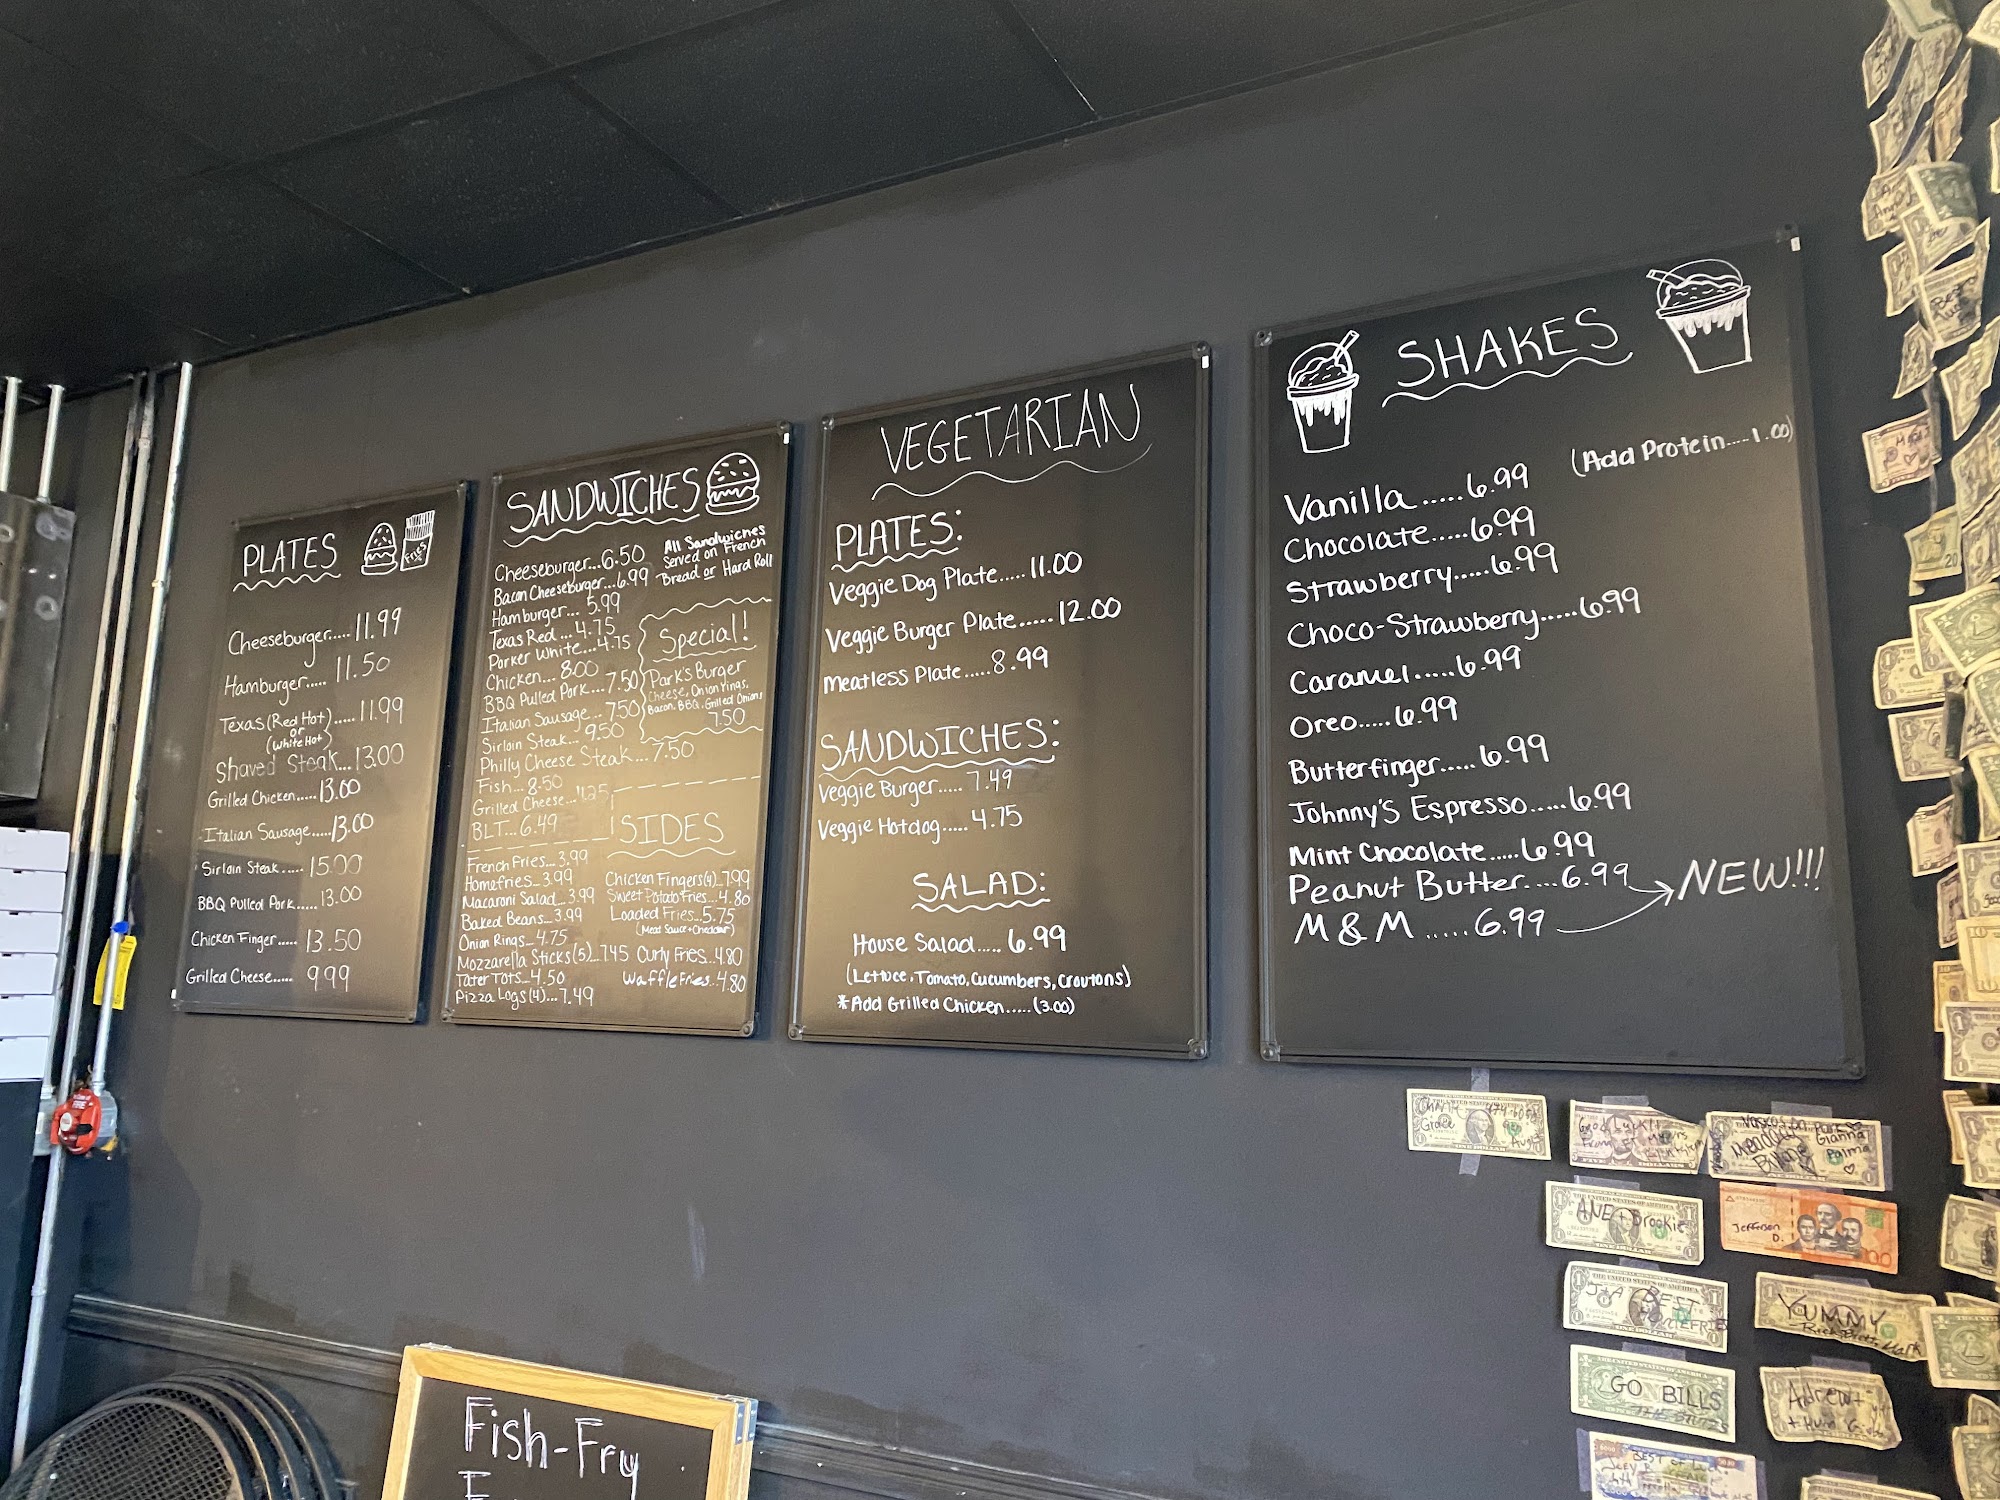 PLATES
Fries
Cheeseburger.....11.99
Hamburger.....11.50
Texas (Red Hot).....11.99
or
(White Hot)
Shaved Steak...13.00
Grilled Chicken.....13.00
Italian Sausage.....13.00
Sirloin Steak.....15.00
BBQ Pulled Pork.....13.00
Chicken Finger.....13.50
Grilled Cheese.....9.99
SANDWICHES
All Sandwiches
Served on French
Bread or Hard Roll
Cheeseburger...6.50
Bacon Cheeseburger...6.99
Hamburger...5.99
Texas Red...4.75
Porker White...4.75
Chicken...8.00
BBQ Pulled Pork...7.50
Italian Sausage...7.50
Sirloin Steak...9.50
Philly Cheese Steak...7.50
Fish...8.50
Grilled Cheese...
BLT...6.49
Special!
Park's Burger
Cheese, Onion Rings,
Bacon, BBQ, Grilled Onions
7.50
SIDES
French Fries...3.99
Homefries...3.99
Macaroni Salad...3.99
Baked Beans...3.99
Onion Rings...4.75
Mozzarella Sticks (5)...7.45
Tater Tots...4.50
Pizza Logs (4)...7.49
Chicken Fingers (4)...7.99
Sweet Potato Fries...4.80
Loaded Fries...5.75
(Meat Sauce + Cheddar)
Curly Fries...4.80
Waffle Fries...4.80
VEGETARIAN
PLATES:
Veggie Dog Plate.....11.00
Veggie Burger Plate.....12.00
Meatless Plate.....8.99
SANDWICHES:
Veggie Burger.....7.49
Veggie Hotdog.....4.75
SALAD:
House Salad.....6.99
(Lettuce, Tomato, Cucumbers, Croutons)
*Add Grilled Chicken.....(3.00)
SHAKES
(Add Protein....1.00)
Vanilla.....6.99
Chocolate.....6.99
Strawberry.....6.99
Choco-Strawberry.....6.99
Caramel.....6.99
Oreo.....6.99
Butterfinger.....6.99
Johnny's Espresso.....6.99
Mint Chocolate.....6.99
Peanut Butter....6.99
M & M.....6.99
NEW!!!
Fish-Fry
Grace
Good Luck!!
Meadow
Gianna
Palma
ANE + Brookie
Jefferson
D.
100
J+A BEST
YUMMY
GO BILLS
Andrew +
BEST of Luck